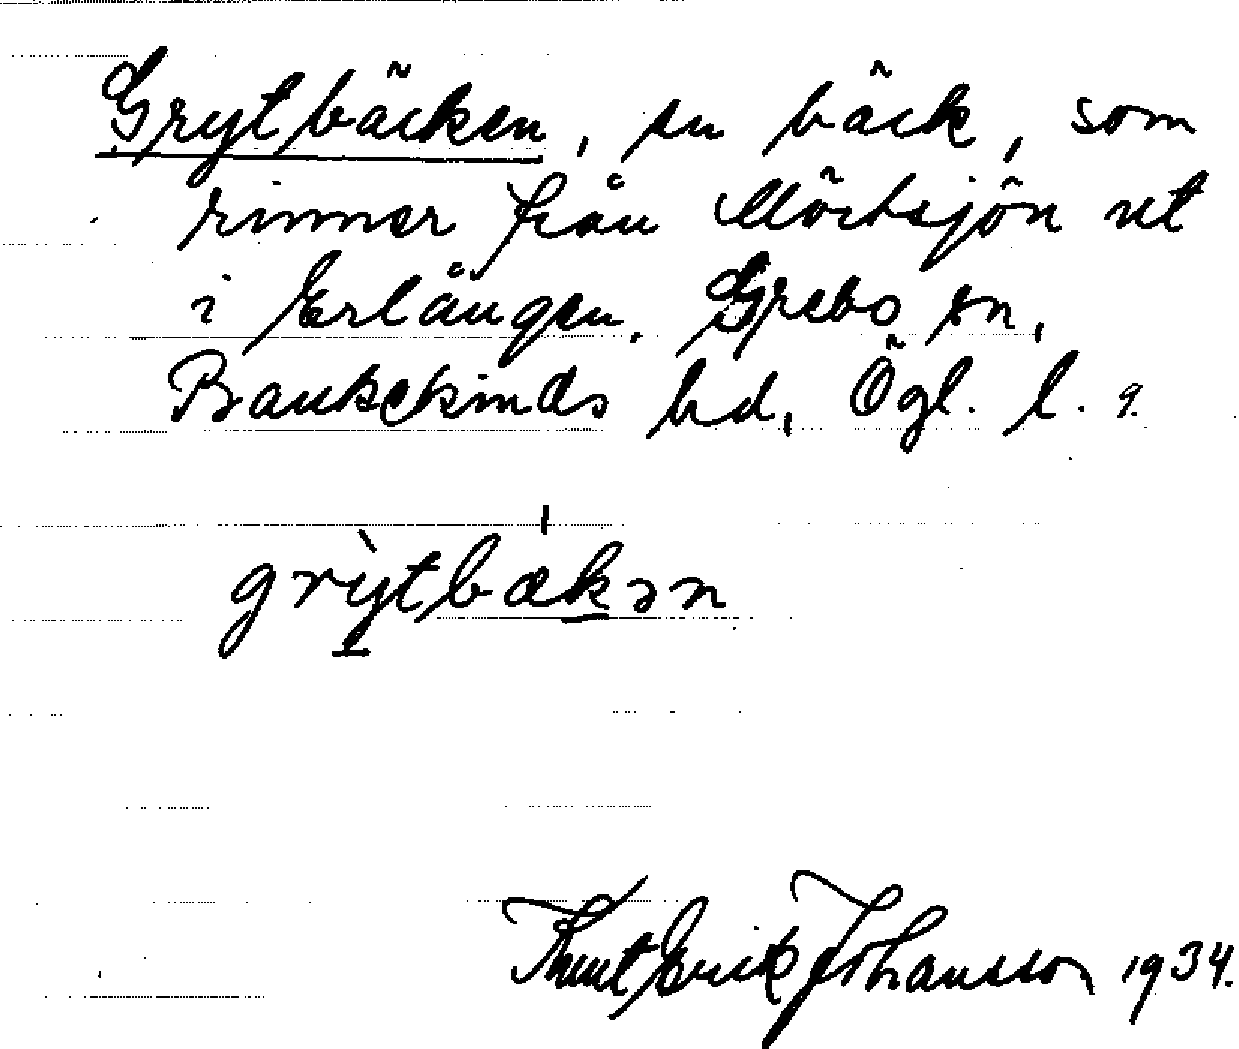 Grytbäcken, en bäck, som
rinner från Mörtsjön ut
i Erlången. Grebo sn,
Bankekinds hd, Ögl. l.
grytbäkən
Knut Erik Johansson 1934.